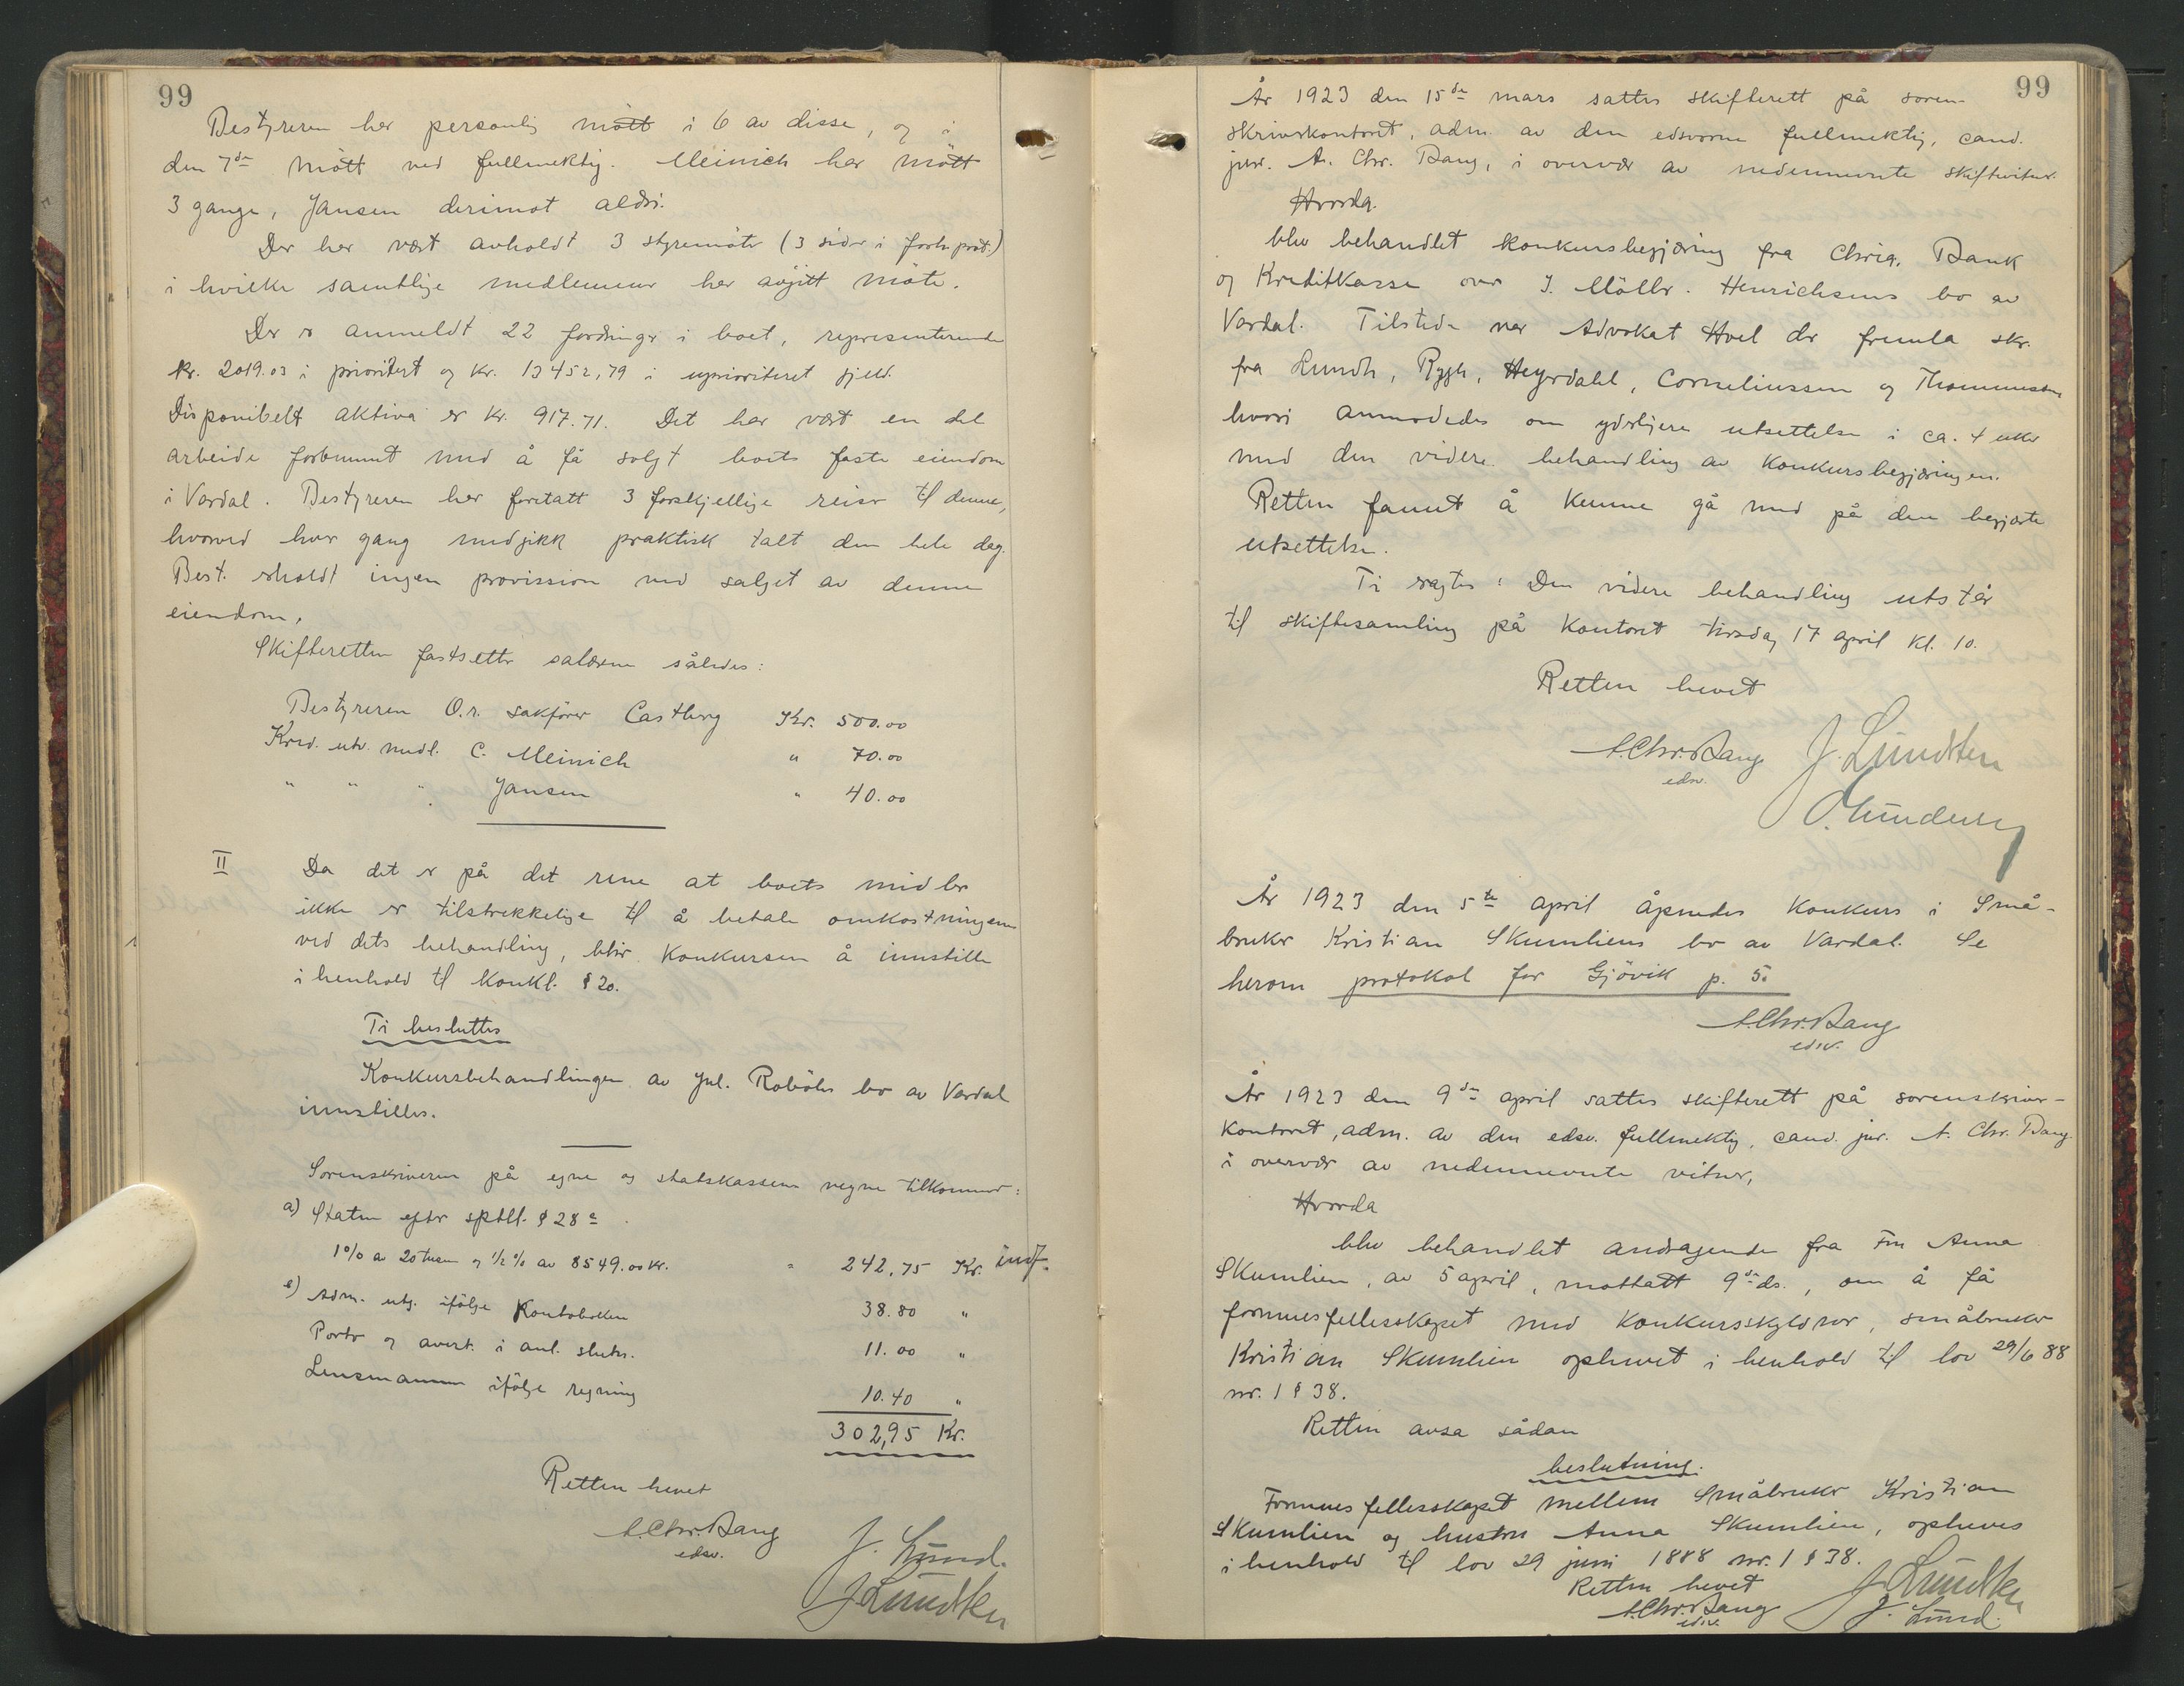 99
Bestyreren har personlig møtt i 6 av disse, og i
den 7de møtt ved fullmektig. Meinich har møtt
3 gange, Jansen derimot aldri.
Der har vært avholdt 3 styremøter (3 sider i forh. prot.)
i hvilke samtlige medlemmer har avgitt møte.
Der er anmeldt 22 fordringer i boet, representerende
kr. 2019.03 i prioritert og kr. 13452,79 i uprioriteret gjeld.
Disponibelt aktiva er kr. 917.71. Det har vært en del
arbeide forbunnet med å få solgt boets faste eiendom
i Vardal. Bestyreren har foretatt 3 forskjellige reiser til denne,
hvorved hver gang medgikk praktisk talt den hele dag.
Best. erholdt ingen provission ved salget av denne
eiendom.
Skifteretten fastsetter salærene således:
Bestyreren O.r. sakfører Castberg Kr. 500.00
Kred. utv. medl. C. Meinich " 70.00
" " " Jansen " 40.00
II Da det er på det rene at boets midler
ikke er tilstrekkelige til å betale omkostningene
ved dets behandling, blir konkursen å innstille
i henhold til konkl. § 20.
Ti besluttes
Konkursbehandlingen av Jul. Robøles bo av Vardal
innstilles.
Sorenskriveren på egne og statskassens vegne tilkommer:
a) Staten efter sptll. § 28 a
1% av 20 tusen og 1/2 % av 8549.00 kr. = 242,75 Kr. indf.
e) Adm. utg. ifølge Kontoboken 38.80 "
Porto og avert. i anl. slutn. 11.00 "
Lensmannen ifølge regning 10.40 "
302,95 Kr.
Retten hevet
A. Chr. Bang
edsv.
J. Lund.
J Lundsten
99
År 1923 den 15de mars sattes skifterett på soren-
skriverkontoret, adm. av den edsvorne fullmektig, cand.
jur. A. Chr. Bang, i overvær av nedennevnte skiftevitner.
Hvorda.
blev behandlet konkursbegjæring fra Chria. Bank
og Kreditkasse over J. Møller-Henrichsens bo av
Vardal. Tilstede var Advokat Hoel der fremla skr.
fra Lundh, Rygh, Heyerdahl, Corneliussen og Thommessen
hvori anmodedes om yderligere utsettelse i ca. 4 uker
med den videre behandling av konkursbegjæringen.
Retten fannt å kunne gå med på den begjærte
utsettelse.
Ti sagtes: Den videre behandling utstår
til skiftesamling på kontoret tirsdag 17 april kl. 10.
Retten hevet
A. Chr. Bang
edsv.
J. Lundsten
År 1923 den 5te april åpnedes konkurs i Små-
bruker Kristian Skumliens bo av Vardal. Se
herom protokol for Gjøvik p. 5.
A. Chr. Bang
edsv.
År 1923 den 9de april sattes skifterett på sorenskriver-
kontoret, adm. av den edsv. fullmektig, cand. jur. A. Chr. Bang
i overvær av nedennevnte vitner,
Hvorda
blev behandlet andragende fra Fru Anna
Skumlien, av 5 april, mottatt 9de ds., om å få
formuesfellesskapet med konkursskyldner, småbruker
Kristian Skumlien ophevet i henhold til lov 29/6 88
nr. 1 § 38.
Retten avsa sådan
beslutning.
Formuesfellesskapet mellem Småbruker Kristian
Skumlien og hustru Anna Skumlien, opheves
i henhold til lov 29 juni 1888 nr. 1 § 38.
Retten hevet
A. Chr. Bang
edsv.
J. Lundsten
J. Lund.